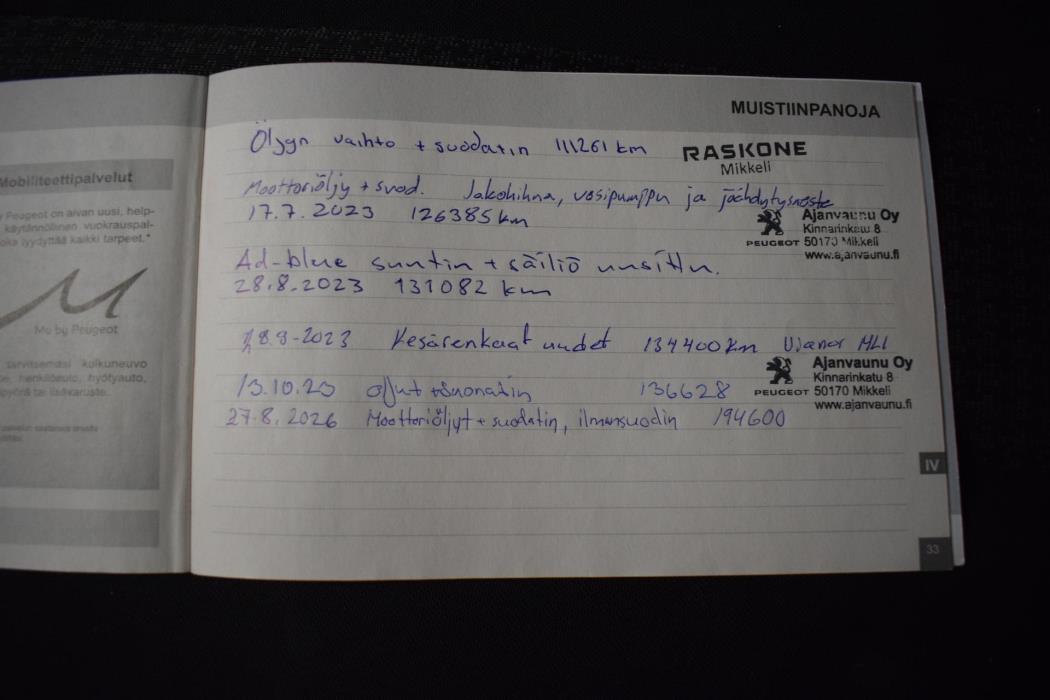 Mobiliteettipalvelut
Peugeot on aivan uusi, help-
käytännöllinen vuokrauspal-
oka tyydyttää kaikki tarpeet.*
Mu by Peugeot
tarvitsemasi kulkuneuvo
henkilöauto, hyötyauto,
tai lisävaruste.
MUISTIINPANOJA
Öljyn vaihto + suodatin 111261 km
RASKONE
Mikkeli
Moottoriöljy + suod. Jakohihna, vesipumppu ja jäähdytysneste
17.7.2023 126385 km
Ajanvaunu Oy
Kinnarinkatu 8
PEUGEOT 50170 Mikkeli
www.ajanvaunu.fi
Ad-blue suutin + säiliö uusittu.
28.8.2023 131082 km
8.9-2023 Kesärenkaat uudet 134400 km Vianor MLI
Ajanvaunu Oy
Kinnarinkatu 8
PEUGEOT 50170 Mikkeli
www.ajanvaunu.fi
13.10.23 öljyt + 136628
27.8.2026 Moottoriöljyt + suodatin, ilmansuodin 194600
IV
33